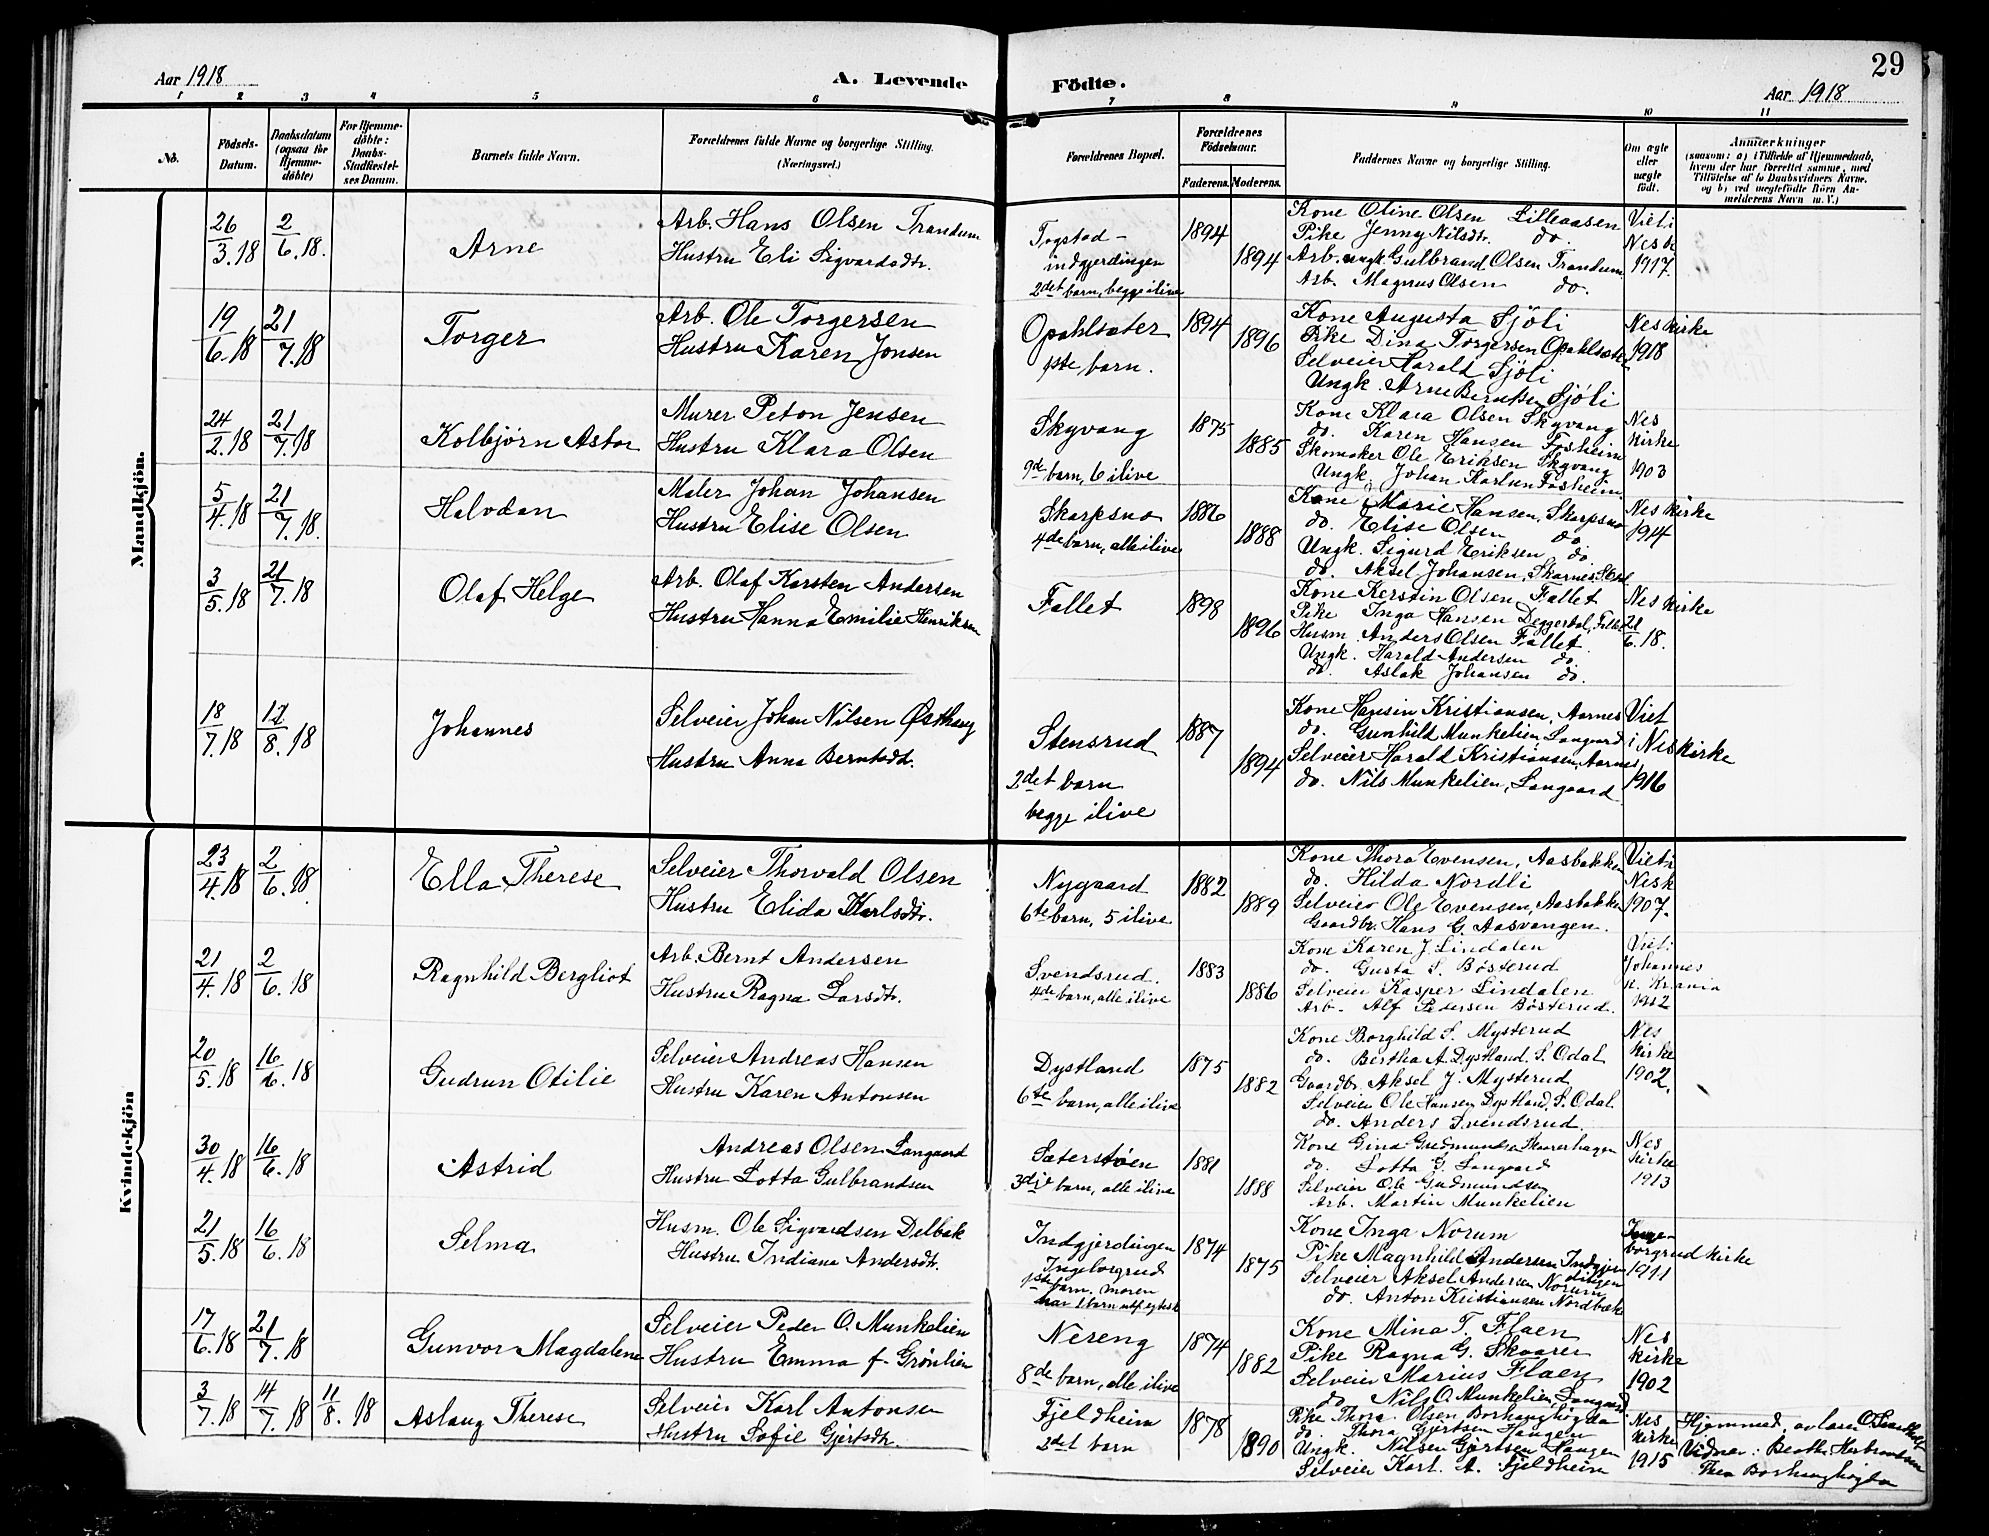 29
Aar 1918
A. Levende
Födte.
Aar 1918
1 2 3 4 5 6 7 8 9 10 11
No.
Födsels-
Datum.
Daabsdatum
(ogsaa for
Hjemme-
døbte)
For Hjemme-
døbte:
Daabs-
Stadfæstel-
ses Datum.
Barnets fulde Navn.
Forældrenes fulde Navne og borgerlige Stilling.
(Næringsvei.)
Forældrenes Bopæl.
Forældrenes
Födselsaar.
Faderens. Moderens.
Faddernes Navne og borgerlige Stilling.
Om ægte
eller
uægte
født.
Anmærkninger
(saasom: a) i Tilfælde af Hjemmedaab,
hvem der har forrettet samme, med
Tilföielse af to Daabsvidners Navne.
og b) ved uægtefödte Börn An-
melderens Navn m. V.)
Mandkjön.
26/3.18 2/6.18. Arne
Arb. Hans Olsen Trandum
Hustru Eli Sigvardsdtr.
Togstad-
indgjerdingen
2det barn, begge ilive
1894 1894
Kone Oline Olsen Lilleaasen
Pike Jenny Nilsdtr. do.
Arb. ungk Gulbrand Olsen Trandum
Arb. Magnus Olsen do.
Viet i
Nes k
1917.
19/6.18 21/7.18 Torger
Arb. Ole Torgersen
Hustru Karen Jonsen
Opahlsæter
1ste barn.
1894 1896
Kone Augusta Sjöli
Pike Dina Torgersen Opahlsæter
Selveier Harald Sjöli
Ungk. Arne Berntsen Sjöli
Nes kirke
1918
24/2.18 21/7.18 Kolbjørn Astor
Murer Peton Jensen
Hustru Klara Olsen
Skyvang
9de barn, 6 ilive
1875 1885
Kone Klara Olsen Skyvang
do. Karen Hansen Fosheim
Skomaker Ole Eriksen Skyvang
Ungk. Johan Karlsen Fosheim
Nes
kirke
1903
5/4.18 21/7.18. Halvdan
Maler Johan Johansen
Hustru Elise Olsen
Skarpsno
4de barn, alle ilive
1886 1888
Kone Marie Hansen, Skarpsno
do. Elise Olsen do
Ungk. Sigurd Eriksen do
do. Aksel Johansen, Skarnes
Nes kirke
1914
3/5.18 21/7.18 Olaf Helge
Arb. Olaf Karsten Andersen
Hustru Hanna Emilie Henriksen
Fallet
1898 1896
Kone Kerstin Olsen Fallet
Pike Inga Hansen Deggerdal, Fallet
Husm. Anders Olsen Fallet.
Ungk. Harald Andersen do.
do. Aslak Johansen do.
Nes kirke
21/6.18.
18/7.18 /8.18 Johannes
Selveier Johan Nilsen Østhaug
Hustru Anna Berntsdtr.
Stensrud
2det barn
begge ilive
1887 1894
Kone Hansin Kristiansen, Aarnes
do. Gunhild Munkelien Langaard
Selveier Harald Kristiansen, Aarnes
do. Nils Munkelien, Langaard
Viet
i Nes kirke
1916
Kvindekjön
23/4.18 2/6.18 Ella Therese
Selveier Thorvald Olsen
Hustru Elida Karlsdtr.
Nygaard
6te barn, 5 ilive
1882 1889
Kone Thora Evensen, Aasbakken
do. Hilda Nordli
Selveier Ole Evensen, Aasbakken
Gaardbr. Hans G. Aasvangen.
Viet i
Nes k
1907.
21/4.18 2/6.18 Ragnhild Bergliot
Arb. Bernt Andersen
Hustru Ragna Larsdtr.
Svendsrud.
4de barn, alle ilive
1883 1886
Kone Karen J. Lindalen
do. Gusta S. Bösterud
Selveier Kasper Lindalen
Arb. Alf Pedersen Bösterud.
Viet i
Johannes
k. Krania
1902
20/5.18 16/6.18 Gudrun Otilie
Selveier Andreas Hansen
Hustru Karen Antonsen
Dystland
6te barn, alle ilive
1875 1882
Kone Borghild S. Mysterud
do. Bertha A. Dystland. S. Odal.
Gaardbr. Aksel J. Mysterud
Selveier Ole Hansen Dystland, S. Odal.
do. Anders Svendsrud.
Nes
kirke
1902.
30/4.18 16/6.18 Astrid
Andreas Olsen Langaard
Hustru Lotta Gulbrandsen
Sæterstöen
3die barn, alle ilive
1881 1888
Kone Gina Gudmundsen Skaarerhagen
do. Lotta G. Langaard
Selveier Ole Gudmundsen
Arb. Martin Munkelien
Nes
kirke
1913
21/5.18 16/6.18 Selma
Husm. Ole Sigvardsen Delbak
Hustru Indiana Andersdtr.
Indgjerdingen
Ingeborgrud
1ste barn. moren
har 1 barn
1874 1875
Kone Inga Norum
Pike Magnhild Andersen Indgjer-
dingen
Selveier Aksel Andersen Norum
do. Anton Kristiansen Nordbæk
Inge-
borgrud kirke
1911
17/6.18 21/7.18 Gunvor Magdalene
Selveier Peder O. Munkelien
Hustru Emma f. Grönlien
Nereng
8de barn, alle ilive
1874 1882
Kone Mina T. Flaen
Pike Ragna G. Skaarer
Selveier Marius Flaen
do Nils O. Munkelien, Langaard
Nes
kirke
1902
3/7.18 14/7.18 11/8.18 Aslaug Therese
Selveier Karl Antonsen
Hustru Sofie Gjertsdtr.
Fjeldheim
2det barn
1878 1890
Pike Thora Olsen Borhaughögda
do. Thora Gjertsen Haugen
Ungk. Nilsen Gjertsen Haugen
Selveier Karl. A. Fjeldheim
Nes
kirke
1915
Hjemmed. av
Vidner: Berthe Herbrandsen
Thea Borhaughögda